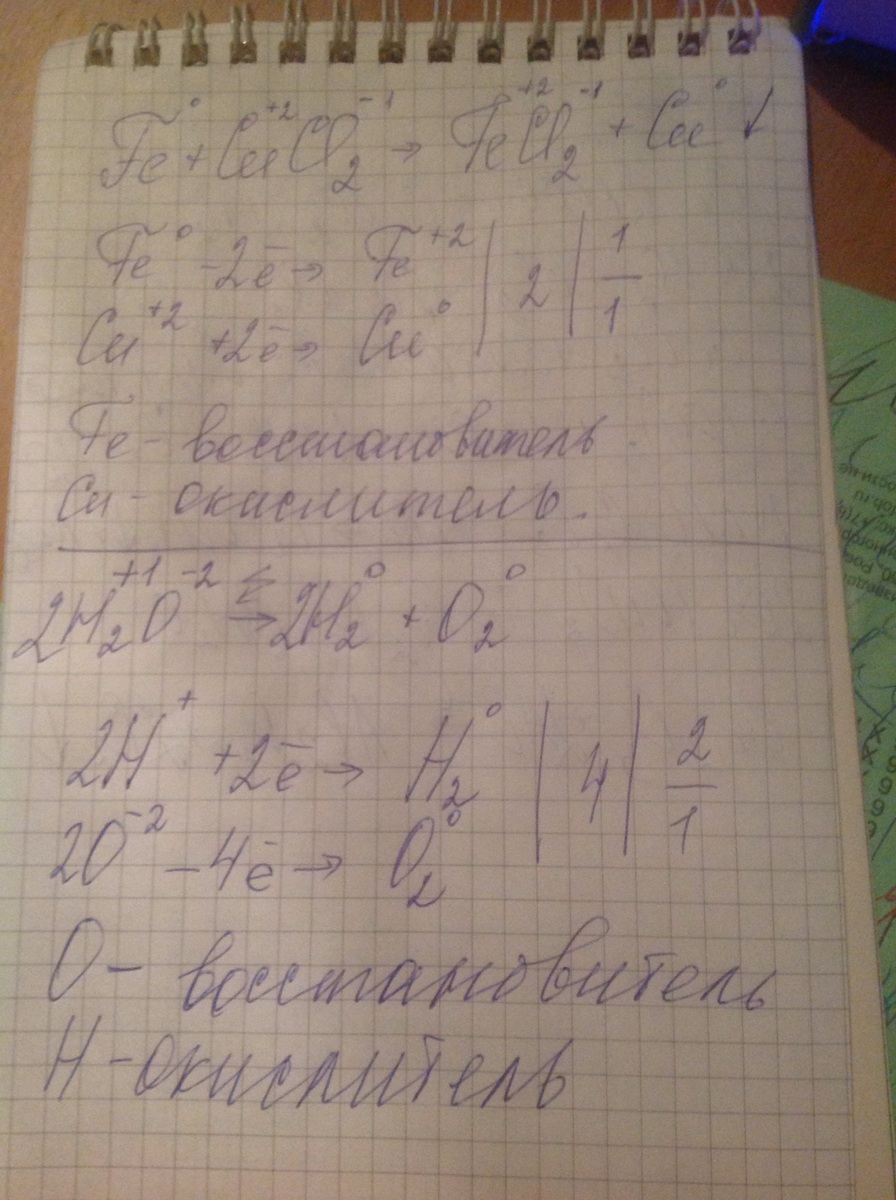 Fe⁰ + Cu⁺²Cl₂⁻¹ → Fe⁺²Cl₂⁻¹ + Cu⁰ ↓
Fe⁰ -2ē → Fe⁺² | 2 | 1
Cu⁺² +2ē → Cu⁰ | 2 | 1
Fe - восстановитель.
Cu - окислитель.
2H₂⁺¹O⁻² → 2H₂⁰ + O₂⁰
2H⁺ +2ē → H₂⁰ | 4 | 2
2O⁻² -4ē → O₂⁰ | 4 | 1
O - восстановитель
H - окислитель